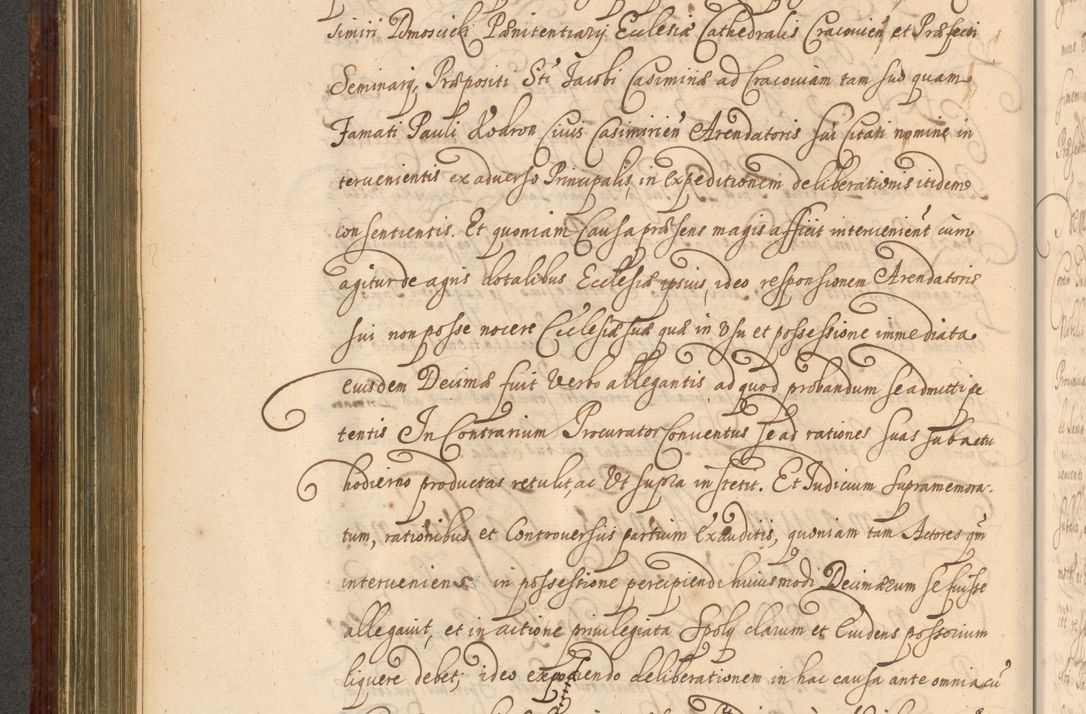 simiri Domoscicki Pænitentiarij Ecclesiæ Cathedralis Cracovien et Præfecti
Seminarij, Præpositi Sti Jacobi Casimiriæ ad Cracoviam tam suo quam
Famati Pauli Kodron Civis Casimirien Arendatoris sui citati nomine in
tervenientis ex adverso Principalis, in Expeditionem deliberationis itidem
consentientis. Et quoniam Causa præsens magis afficit intervenient cum
agitur de agris dotalibus Ecclesiæ ipsius, ideo responsionem Arendatoris
sui non posse nocere Ecclesiæ suæ quæ in Usu et possessione immediata
eiusdem Decimæ fuit Verbo allegantis ad quod probandum se admitti pe
tentis In Contrarium Procurator Conventus se ad rationes suas sub actu
hodierno productas retulit, ac Ut supra institit. Et Judicium supramemora-
tum, rationibus et Controversiis partium Exauditis, quoniam tam Actores qm
interveniens in possessione percipiendi huiusmodi Decimarum se fuisse
allegavit, et in actione privilegiata Spolij clarum et Evidens possorium
liquere debet; ideo expediendo deliberationem in hac causa ante omnia cu